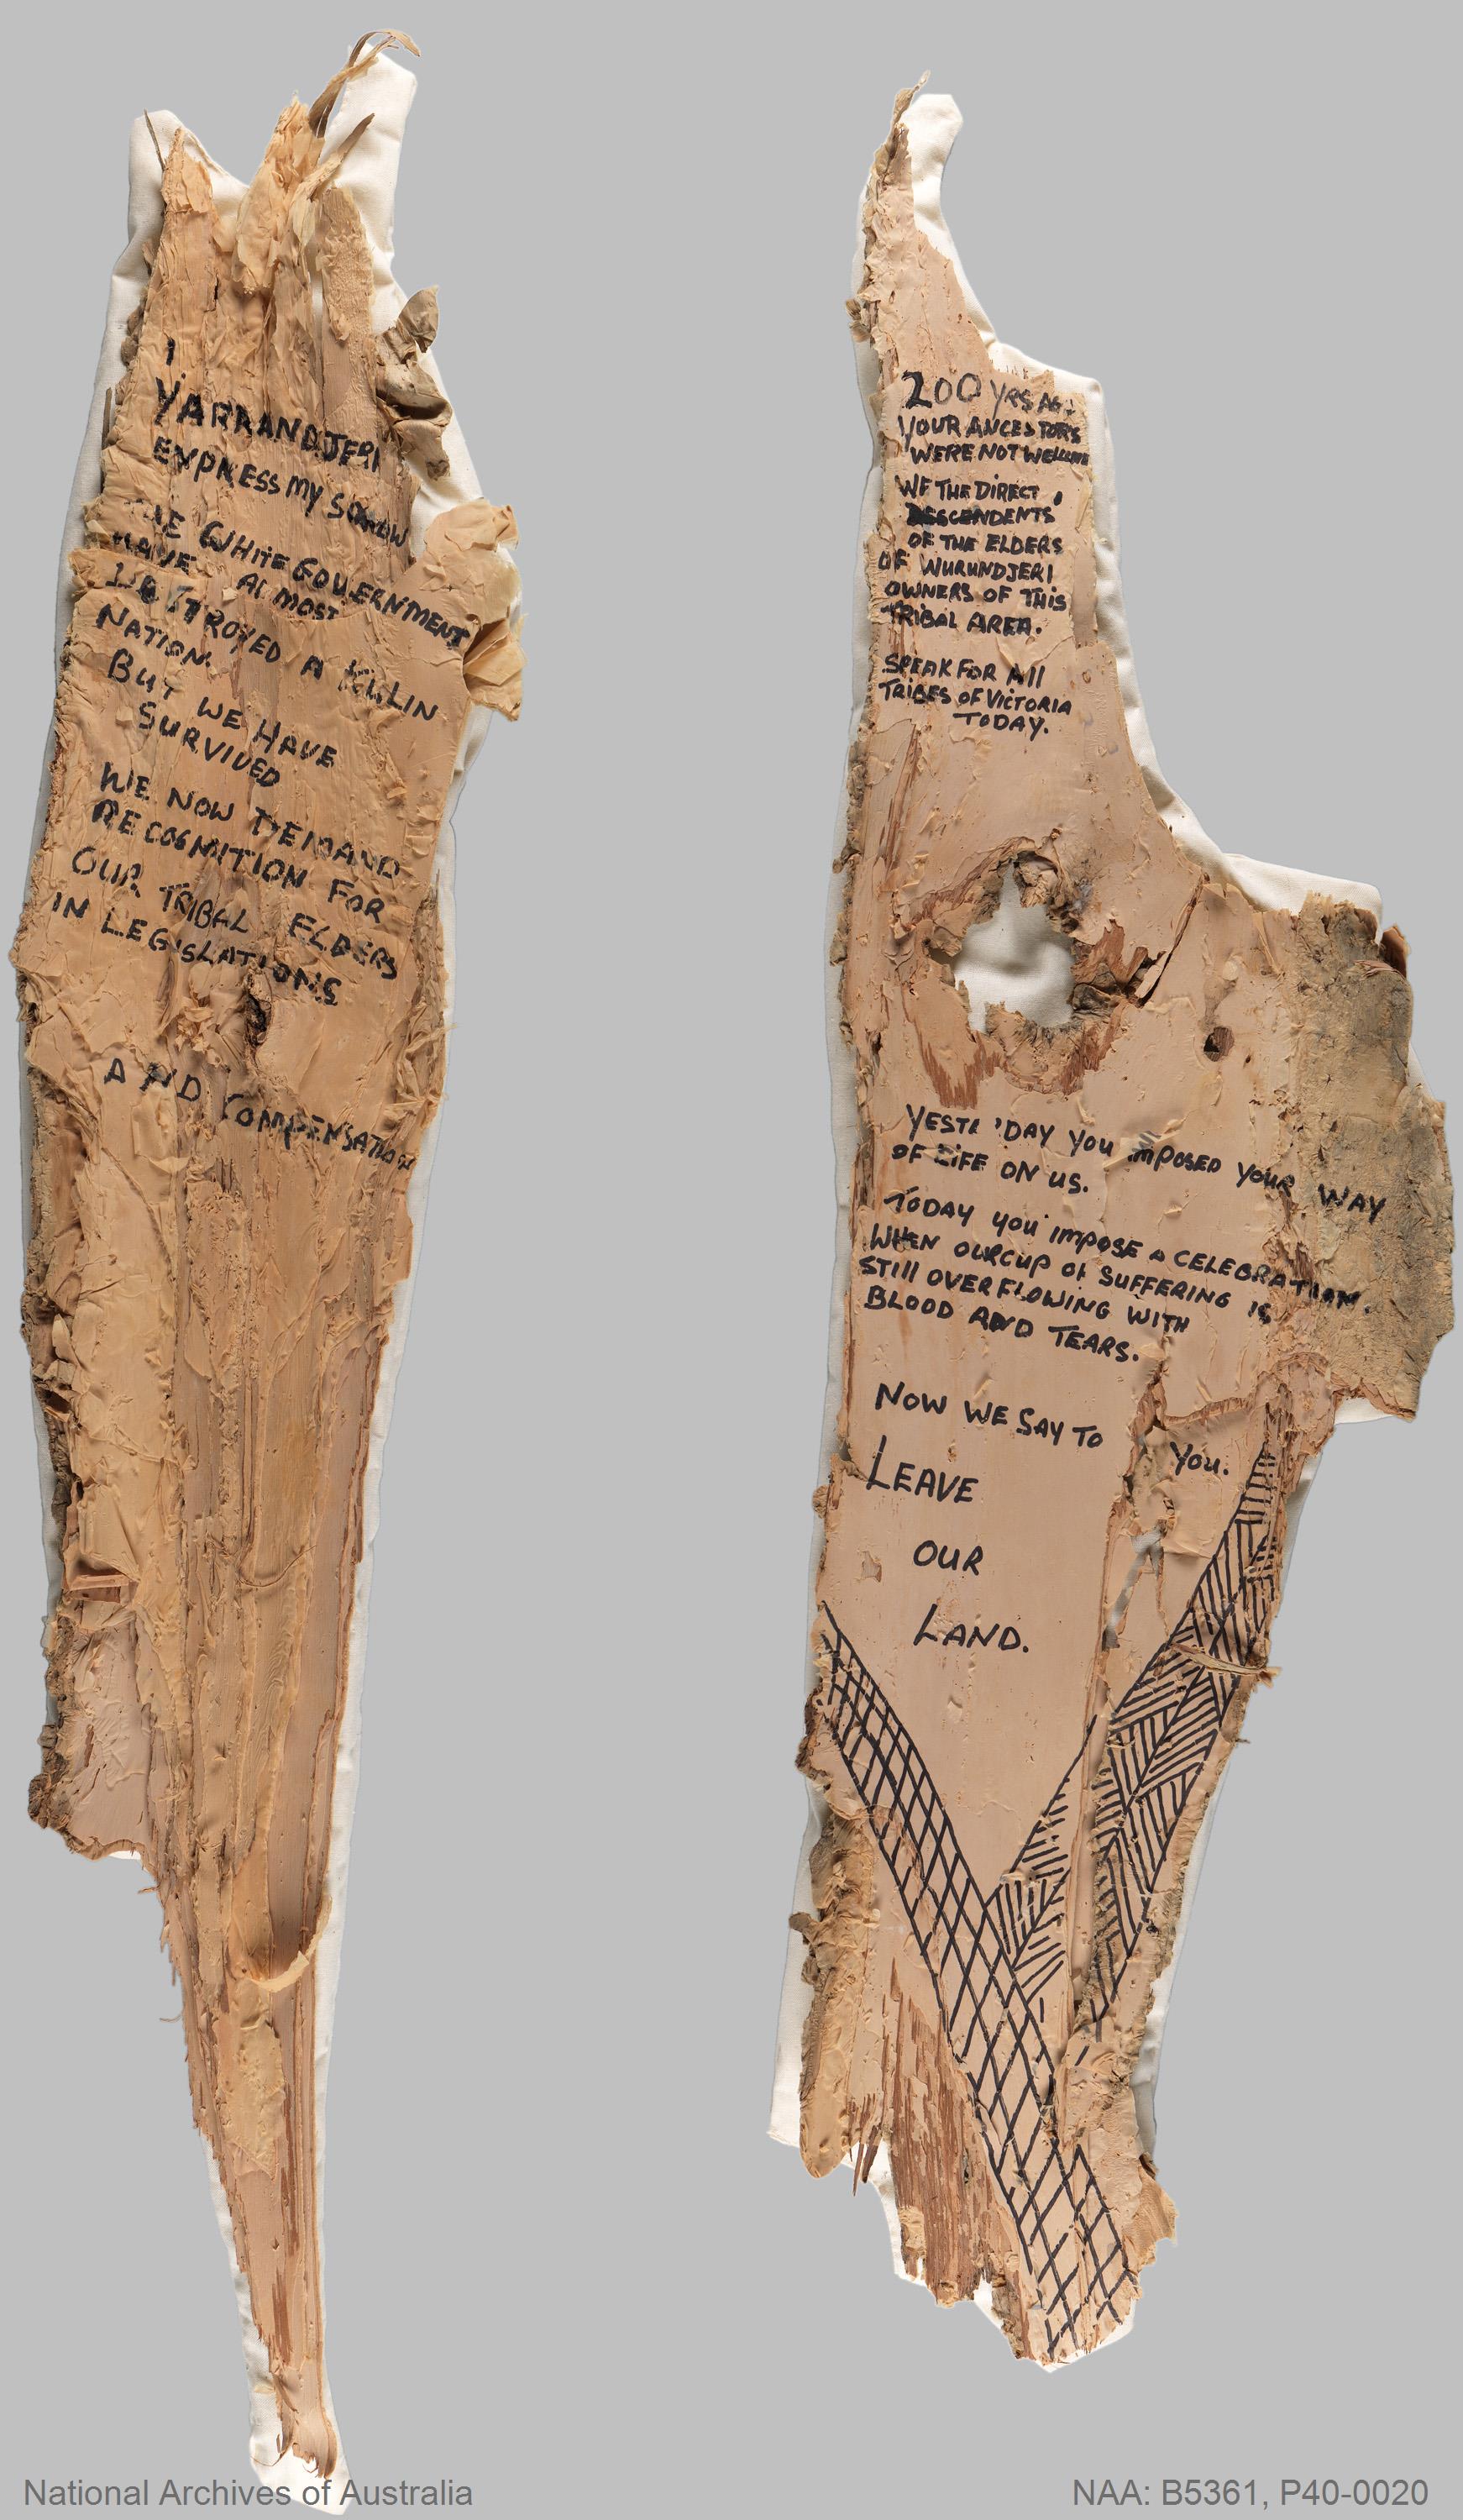 I
YARRANDJERI
EXPRESS MY SORROW
THE WHITE GOVERNMENT
HAVE ALMOST
DESTROYED A KULIN
NATION.
BUT WE HAVE
SURVIVED
WE NOW DEMAND
RECOGNITION FOR
OUR TRIBAL ELDERS
IN LEGISLATIONS
AND COMPENSATION
200 YRS AGO
YOUR ANCESTORS
WERE NOT WELCOME
WE THE DIRECT
DESCENDENTS
OF THE ELDERS
OF WURUNDJERI
OWNERS OF THIS
TRIBAL AREA.
SPEAK FOR All
TRIBES OF VICTORIA
TODAY.
YESTE'DAY YOU IMPOSED YOUR WAY
OF LIFE ON US.
TODAY YOU IMPOSE A CELEBRATION.
WHEN OUR CUP OF SUFFERING IS
STILL OVERFLOWING WITH
BLOOD AND TEARS.
NOW WE SAY TO YOU.
LEAVE
OUR
LAND.
National Archives of Australia
NAA: B5361, P40-0020